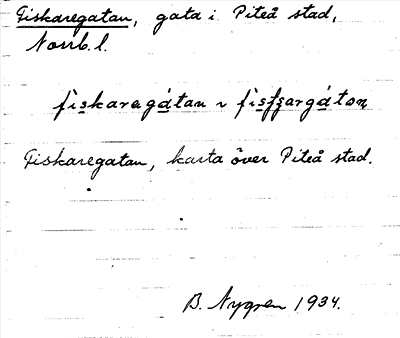 Fiskaregatan, gata i Piteå stad,
Norrb. l.
fiskaregátan
Fiskaregatan, karta över Piteå stad.
B. Nygren 1934.